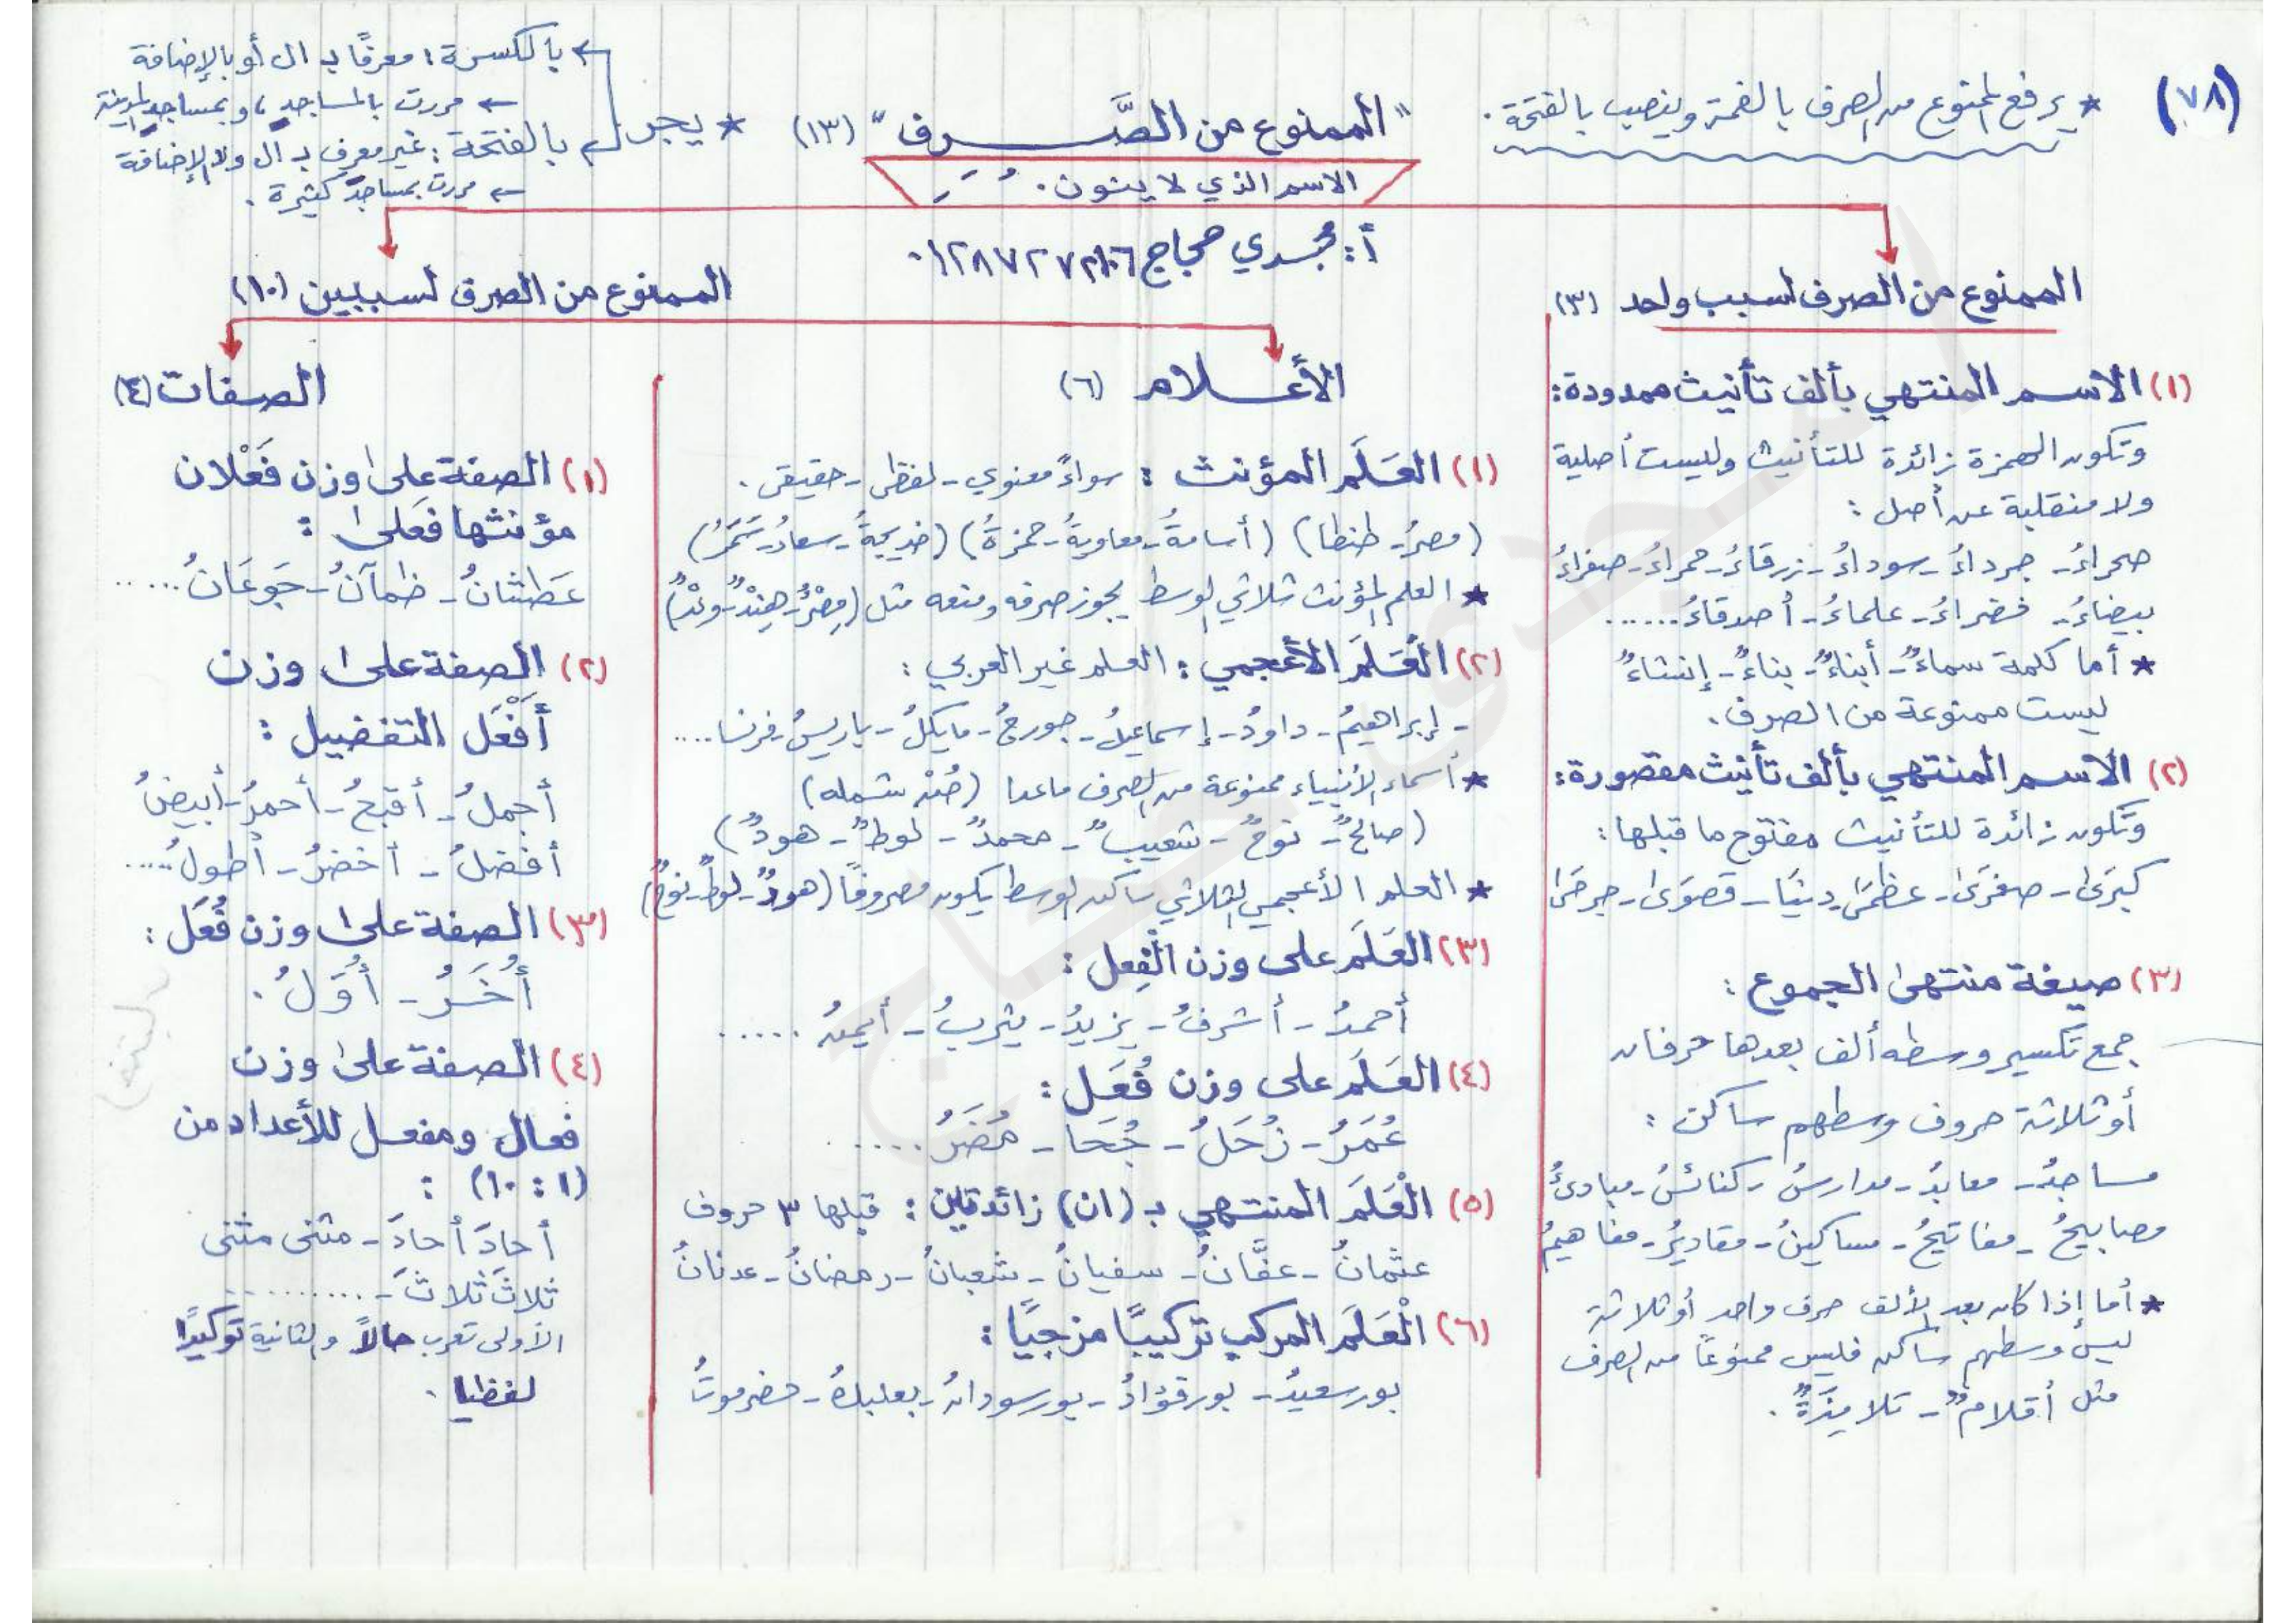 (٧٨)
* يرفع الممنوع من الصرف بالضمة وينصب بالفتحة.
"الممنوع من الصَّرف" (١٣)
الاسم الذي لا ينون.
* يجر
بالكسرة: معرفًا بـ ال أو بالإضافة
← مررت بالمساجدِ، وبمساجدِ المدينة
بالفتحة: غير معرف بـ ال ولا بالإضافة
← مررت بمساجدَ كثيرة.
أ: مجدي حجاج
الممنوع من الصرف لسبب واحد (٣)
(١) الاسم المنتهي بألف تأنيث ممدودة:
وتكون الهمزة زائدة للتأنيث وليست أصلية
ولا منقلبة عن أصل:
صحراءُ - جرداءُ - سوداءُ - زرقاءُ - حمراءُ - صفراءُ
بيضاءُ - خضراءُ - علماءُ - أصدقاءُ ......
* أما كلمة سماءٌ - أبناءٌ - بناءٌ - إنشاءٌ
ليست ممنوعة من الصرف.
(٢) الاسم المنتهي بألف تأنيث مقصورة:
وتكون زائدة للتأنيث مفتوح ما قبلها:
كبرَى - صغرَى - عظمَى - دنيَا - قصوَى - جرحَى
(٣) صيغة منتهى الجموع:
جمع تكسير وسطه ألف بعدها حرفان
أو ثلاثة حروف وسطهم ساكن:
مساجدُ - معابدُ - مدارسُ - كنائسُ - مبادئُ
مصابيحُ - مفاتيحُ - مساكينُ - مقاديرُ - مفاهيمُ
* أما إذا كان بعد الألف حرف واحد أو ثلاثة
ليس وسطهم ساكن فليس ممنوعًا من الصرف
مثل أقلامٌ - تلاميذَةٌ.
الممنوع من الصرف لسببين (١٠)
الأعـلام (٦)
(١) العَلَم المؤنث: سواءً معنوي - لفظي - حقيقي.
(مصرُ - طنطا) (أسامةُ - معاويةُ - حمزةُ) (خديجةُ - سعادُ - سَمَرُ)
* العلم المؤنث ثلاثي الوسط يجوز صرفه ومنعه مثل (مِصْرٌ - هِنْدٌ - وعْدٌ)
(٢) الْعَلَم الأعجمي: العلم غير العربي:
- إبراهيمُ - داودُ - إسماعيلُ - جورجُ - مايكلُ - باريسُ - فرنسا ....
* أسماء الأنبياء ممنوعة من الصرف ماعدا (صُنْ شمله)
(صالحٌ - نوحٌ - شعيبٌ - محمدٌ - لوطٌ - هودٌ)
* العلم الأعجمي الثلاثي ساكن الوسط يكون مصروفًا (هودٌ - لوطٌ - نوحٌ)
(٣) العَلَم على وزن الْفِعل:
أحمدُ - أشرفُ - يزيدُ - يثربُ - أيمنُ .....
(٤) العَلَم على وزن فُعَل:
عُمَرُ - زُحَلُ - جُحَا - مُضَرُ ....
(٥) الْعَلَم المنتهي بـ (ان) زائدتين: قبلها ٣ حروف
عثمانُ - عفَّانُ - سفيانُ - شعبانُ - رمضانُ - عدنانُ
(٦) الْعَلَم المركب تركيبًا مزجيًا:
بورسعيدُ - بورفؤادُ - بورسودانُ - بعلبكُ - حضرموتُ
الصفات (٤)
(١) الصفة على وزن فَعْلان
مؤنثها فَعلى:
عَطشانُ - ظمآنُ - جَوعَانُ .....
(٢) الصفة على وزن
أَفْعَل التفضيل:
أجملُ - أقبحُ - أحمرُ - أبيضُ
أفضلُ - أخضرُ - أطولُ ....
(٣) الصفة على وزن فُعَل:
أُخَرُ - أُوَلُ.
(٤) الصفة على وزن
فعال ومفعل للأعداد من
(١ : ١٠) :
أُحادَ أُحادَ - مثنى مثنى
ثلاثَ ثلاثَ - ..........
الأولى تعرب حالًا والثانية توكيدًا
لفظيا.
مجدي حجاج